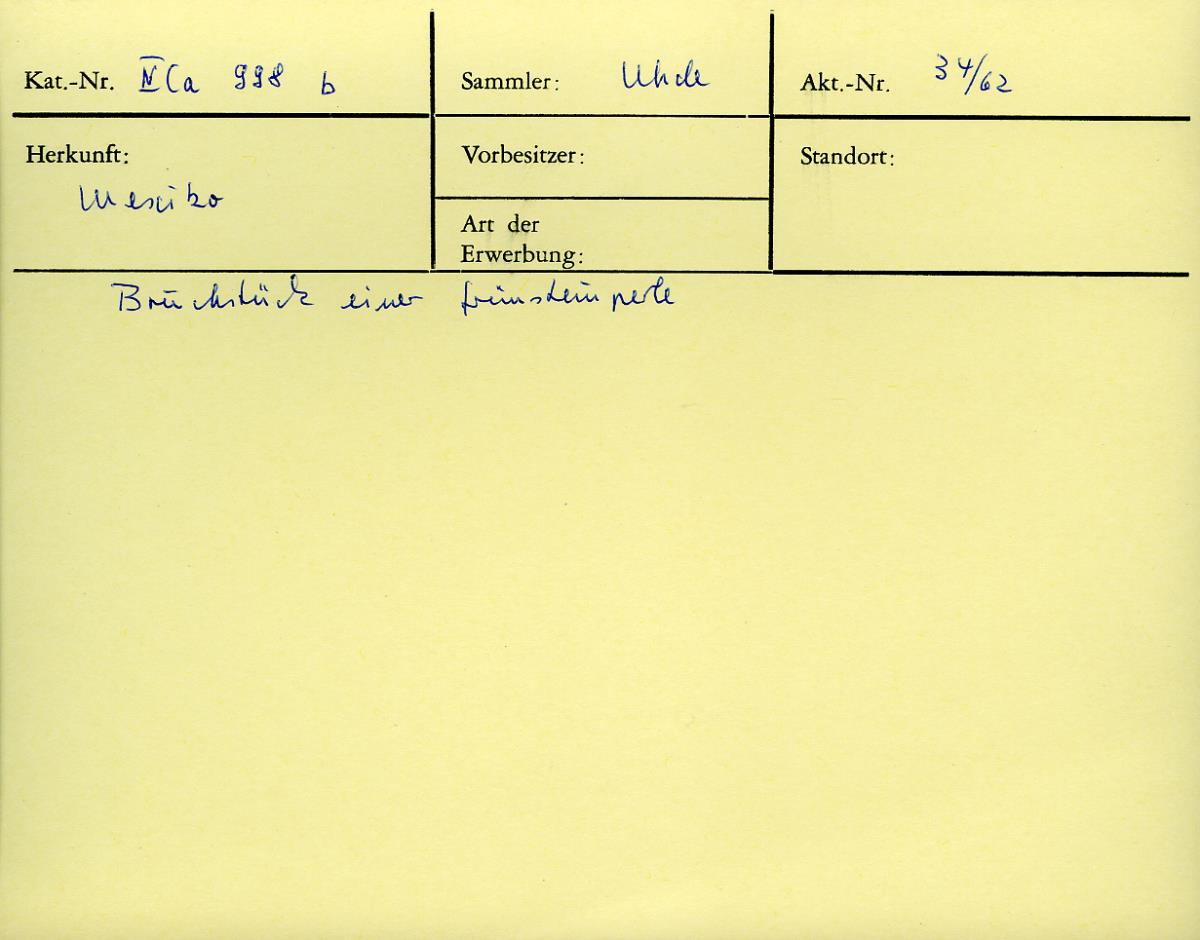 Kat.-Nr. IV Ca 998 b
Sammler: Uhde
Akt.-Nr. 34/62
Herkunft:
Mexiko
Vorbesitzer:
Standort:
Art der
Erwerbung:
Bruchstück einer Grünsteinperle